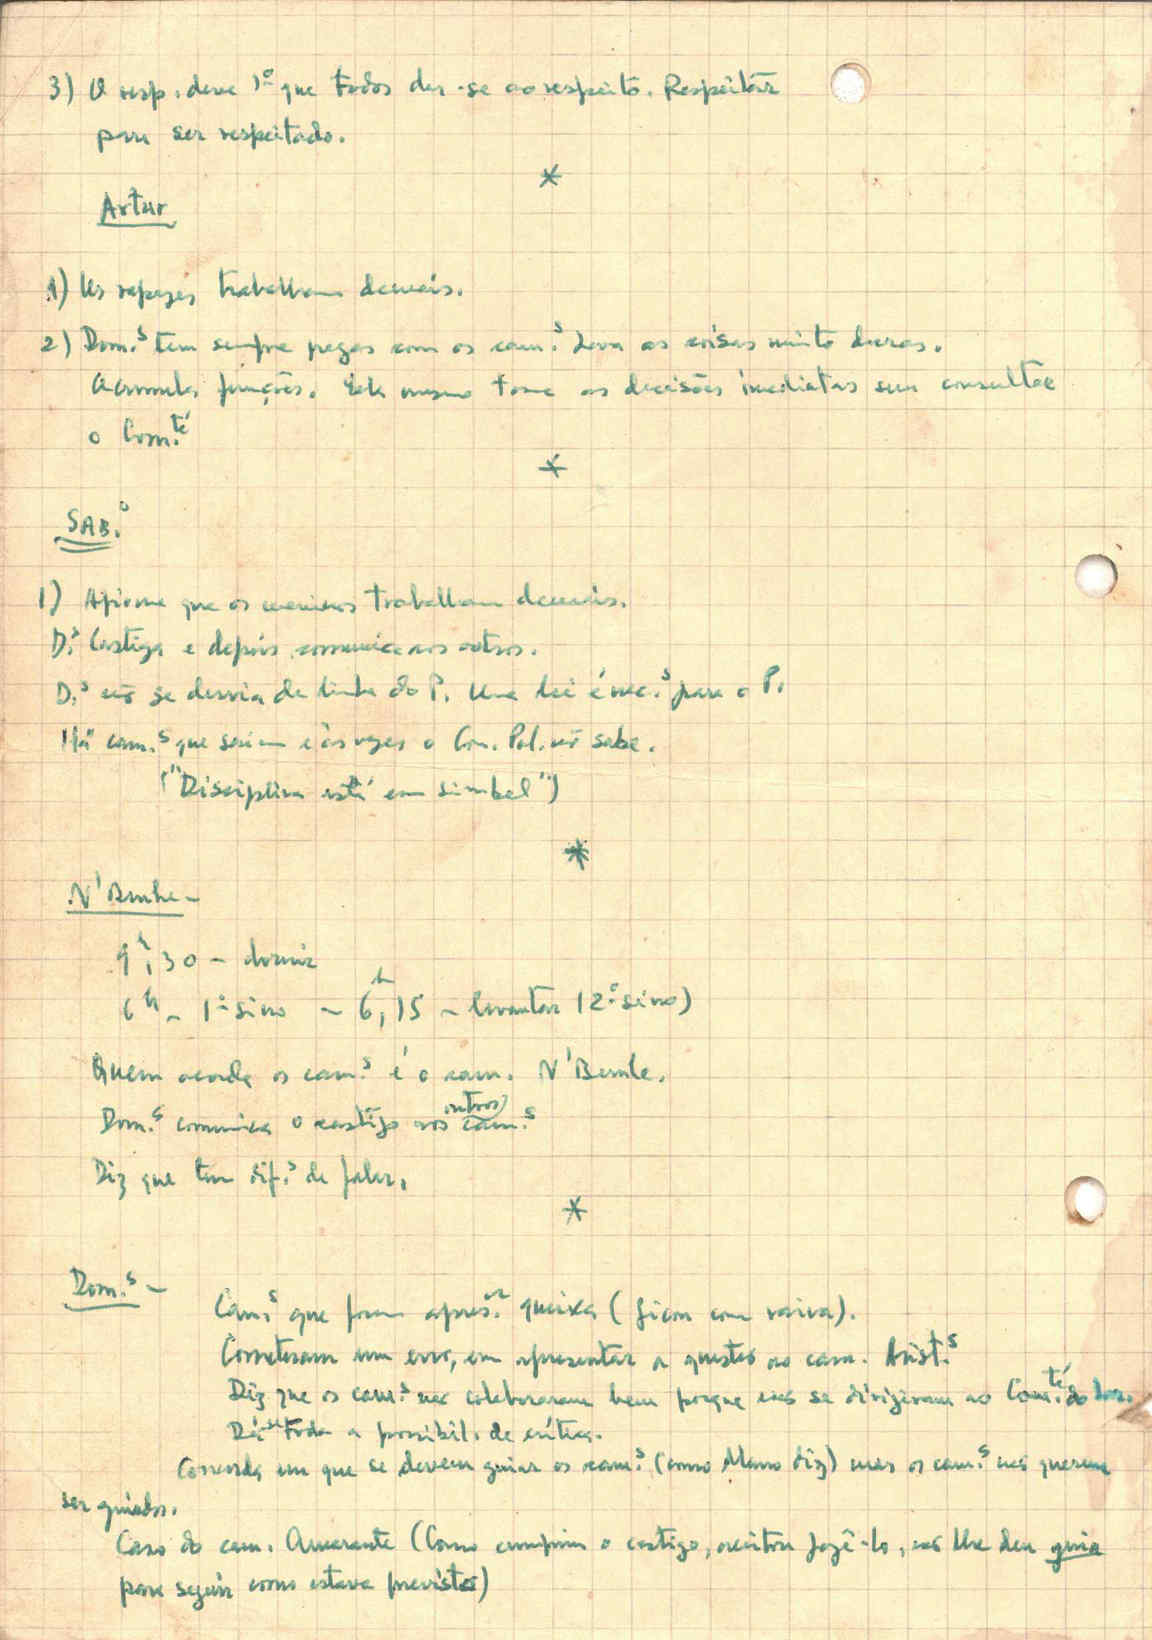 3) O resp. deve 1º que todos dar-se ao respeito. Respeitar
para ser respeitado.
*
Artur
1) Os rapazes trabalham demais.
2) Dom.s tem sempre pegas com os cam.s Leva as coisas muito duras.
Acumula funções. Ele mesmo tome as decisões imediatas sem consultar
o Com.té
*
SAB.º
1) Afirma que os meninos trabalham demais.
D.s Castiga e depois comunica aos outros.
D.s não se desvia da linha do P. Uma lei é nec.s para o P.
Há cam.s que saiem e às vezes o Com. Pol. não sabe.
("Disciplina está em simbel")
*
N'Bemle -
9h,30 - dormir
6h - 1º sino - 6h,15 - levantar (2º sino)
Quem acorda os cam.s é o cam. N'Bemle.
Dom.s comunica o castigo aos outros cam.s
Diz que tem dif.s de falar.
*
Dom.s -
Cam.s que foram apres.r queixa (ficou com raiva).
Cometeram um erro, em apresentar a questão ao cam. Arist.s
Diz que os cam.s não colaboraram bem porque não se dirigiram ao Com.té do
Dá-se toda a possibil. de crítica.
Concorda em que se devem guiar os cam.s (como Mano diz) mas os cam.s não querem
ser guiados.
Caso do cam. Amarante (Como cumpriu o castigo, aceitou fazê-lo, não lhe deu guia
para seguir como estava previsto)